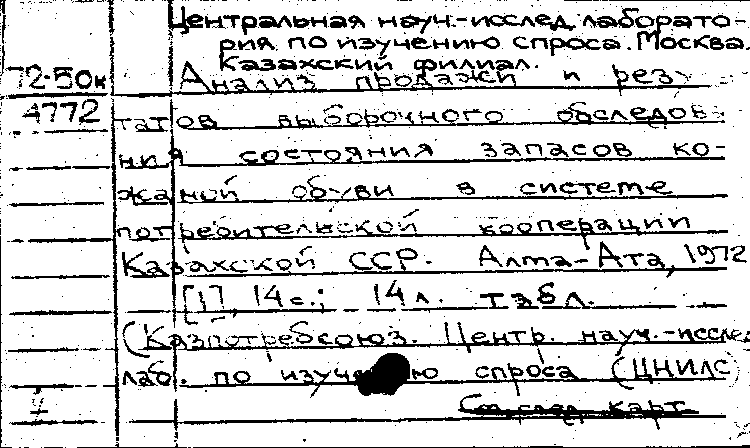 Центральная науч.-исслед. лаборато-
рия по изучению спроса. Москва.
Казахский филиал.
72-50к Анализ продажи и рез
4772 татов выборочного обследов
ния состояния запасов ко-
жаной обуви в системе
потребительской кооперации
Казахской ССР. Алма-Ата, 1972
[1], 14с.; 14л. табл.
(Казпотребсоюз. Центр. науч.-исслед
лаб. по изучению спроса (ЦНИЛС)
См. след. карт.